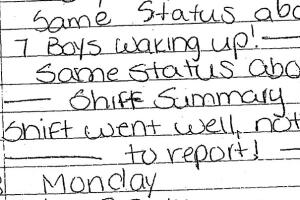 Same Status abo
7 Boys waking up! —
Same status abo
— Shift Summary
Shift went well, not
— to report! —
Monday